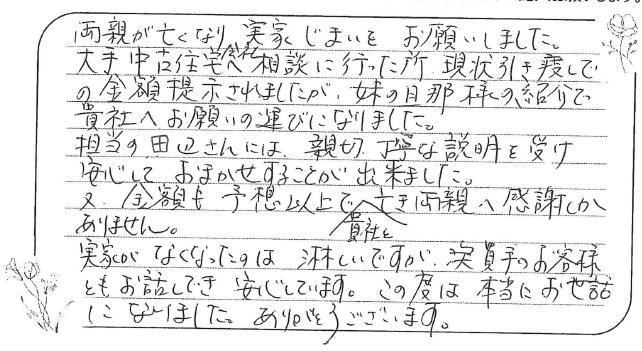 両親が亡くなり、実家じまいを お願いしました。
大手中古住宅会社へ相談に行った所 現状引き渡しで
の金額提示されましたが、妹の旦那様の紹介で
貴社へお願いの運びになりました。
担当の田辺さんには、親切、丁寧な説明を受け
安心して おまかせすることが出来ました。
又、金額も予想以上で 貴社と亡き両親へ感謝しか
ありません。
実家が なくなったのは 淋しいですが、次買手のお客様
ともお話しでき 安心しています。この度は 本当にお世話
に なりました。ありがとうございます。